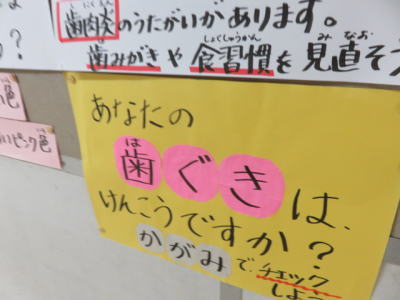 歯肉炎のうたがいがあります。
歯みがきや食習慣を見直そう
か？
い色
いピンク色
あなたの
歯ぐきは、
けんこうですか？
かがみで、チェック
しよう